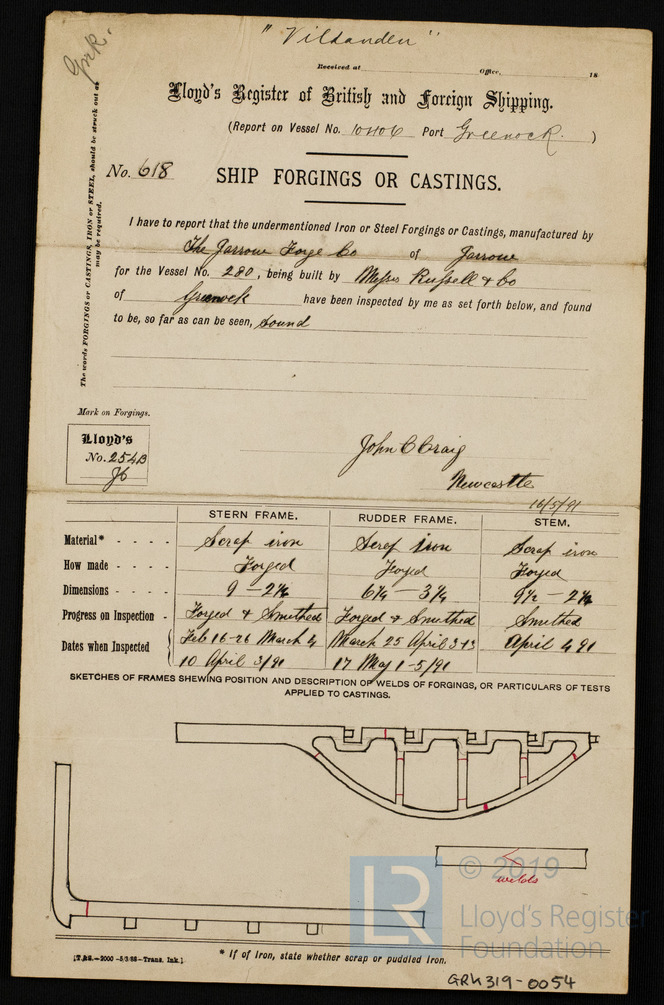 "Vilsanden"
Grk.
Received at Office, 18
Lloyd's Register of British and Foreign Shipping.
(Report on Vessel No. 10406 Port Greenock. )
No. 618 SHIP FORGINGS OR CASTINGS.
The words FORGINGS or CASTINGS, IRON or STEEL, should be struck out as
may be required.
I have to report that the undermentioned Iron or Steel Forgings or Castings, manufactured by
The Jarrow Forge Co of Jarrow
for the Vessel No. 280, being built by Messrs Russell & Co
of Greenock have been inspected by me as set forth below, and found
to be, so far as can be seen, sound
Mark on Forgings.
Lloyd's
No. 254B
John C Craig
Newcastle
16/5/91
STERN FRAME. RUDDER FRAME. STEM.
Material* - - - - Scrap iron Scrap iron Scrap iron
How made - - - - Forged Forged Forged
Dimensions - - - - 9 – 2½ 6¼ – 3¼ 9½ – 2½
Progress on Inspection - Forged & Smithed Forged & Smithed Smithed
Dates when Inspected Feb 16-26 March 4 March 25 April 3-13 April 4 91
10 April 3/91 17 May 1-5/91
SKETCHES OF FRAMES SHEWING POSITION AND DESCRIPTION OF WELDS OF FORGINGS, OR PARTICULARS OF TESTS
APPLIED TO CASTINGS.
welds
© 2019
LR
Lloyd's Register
Foundation
* If of Iron, state whether scrap or puddled iron.
[T.&S.—2000 —5/3/88—Trans. Ink.]
GRK319-0054